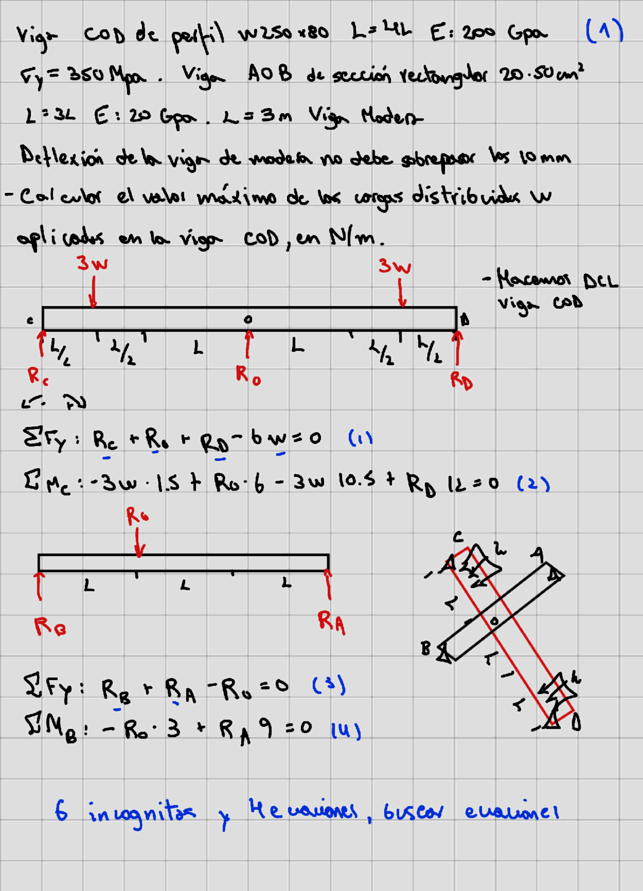 Viga COD de perfil W250x80 L=4L E: 200 Gpa (1)
σy = 350 Mpa. Viga AOB de sección rectangular 20·50 cm²
L=3L E: 20 Gpa. L = 3m Viga Madera
Deflexión de la viga de madera no debe sobrepasar los 10mm
- Calcular el valor máximo de las cargas distribuidas W
aplicadas en la viga COD, en N/m.
3W 3W
- Hacemos DCL
viga COD
C O D
L/2 L/2 L L L/2 L/2
Rc Ro RD
ΣFy: Rc + Ro + RD - 6w = 0 (1)
ΣMc: -3w · 1.5 + Ro · 6 - 3w 10.5 + RD 12 = 0 (2)
Ro
L L L
RB RA
C A
O
B
D
ΣFy: RB + RA - Ro = 0 (3)
ΣMB: - Ro · 3 + RA 9 = 0 (4)
6 incognitas y 4 ecuaciones, buscar ecuaciones